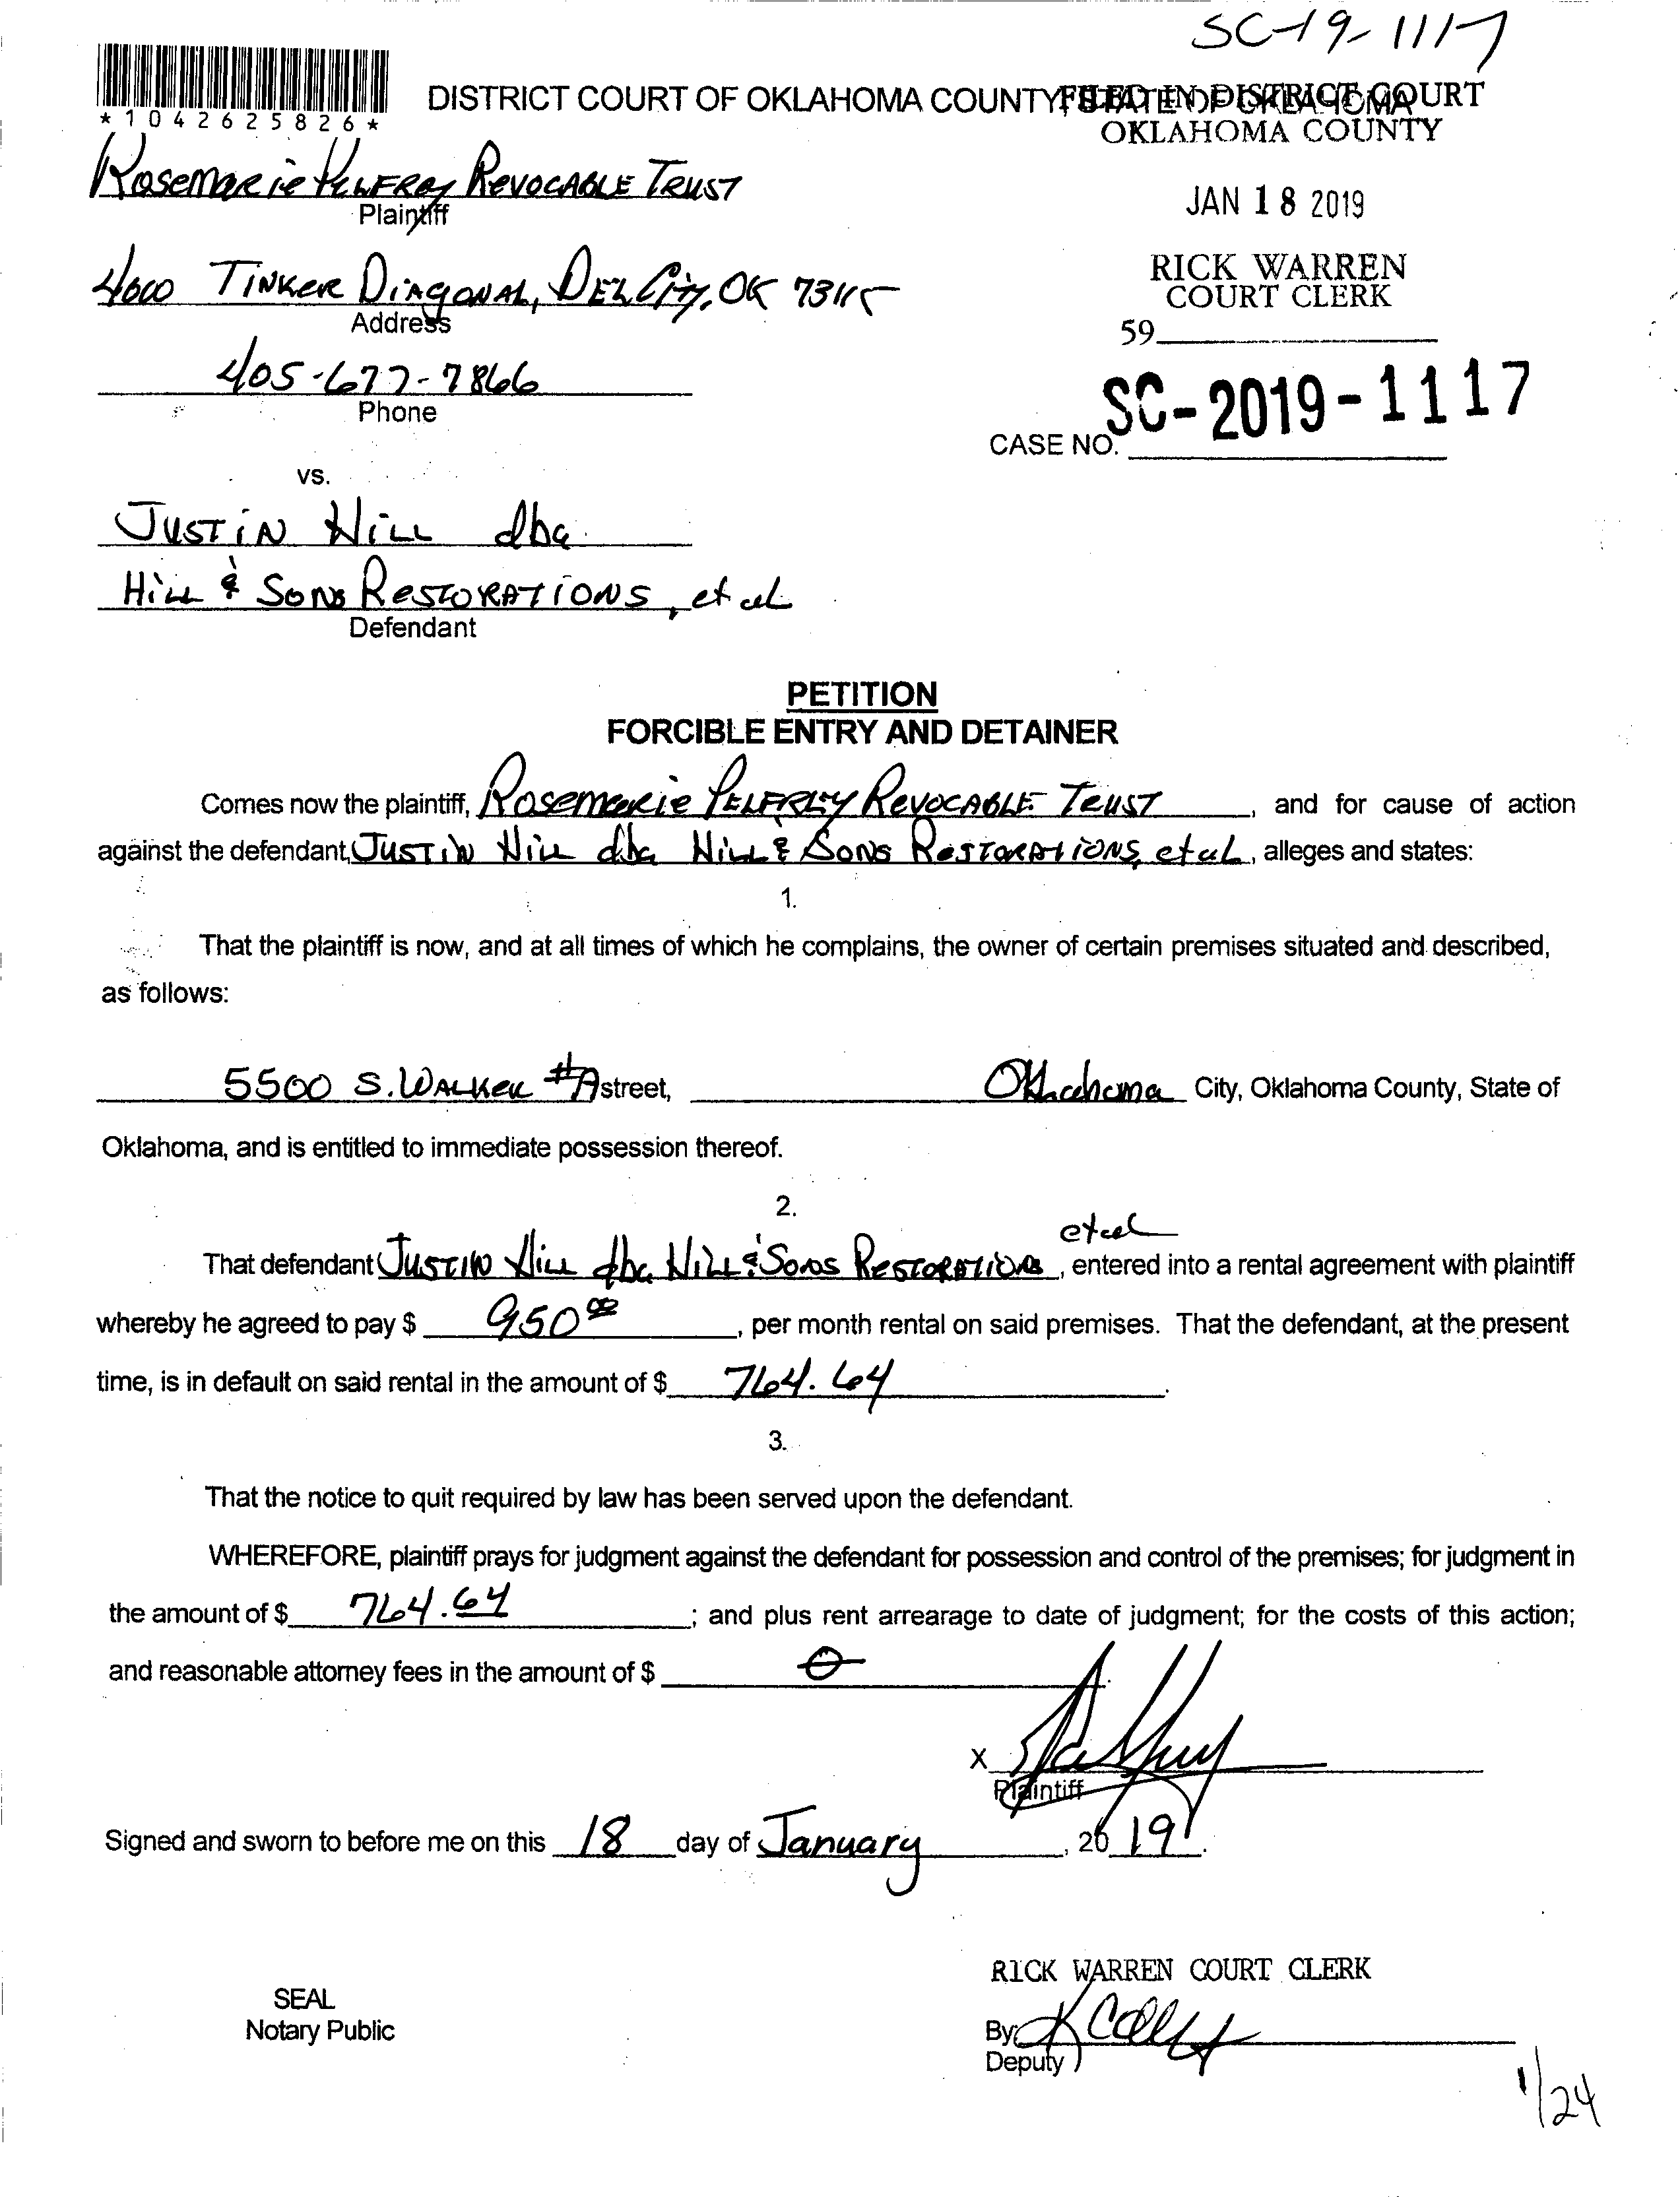 SC-19-1117
*1042625826*
DISTRICT COURT OF OKLAHOMA COUNTY, STATE OF OKLAHOMA
FILED IN DISTRICT COURT
OKLAHOMA COUNTY
Rosemarie Pelfrey Revocable Trust
Plaintiff
JAN 18 2019
4000 Tinker Diagonal, Del City, OK 73115
Address
RICK WARREN
COURT CLERK
59
405-677-7866
Phone
CASE NO. SC-2019-1117
vs.
Justin Hill dba
Hill & Sons Restorations, et al
Defendant
PETITION
FORCIBLE ENTRY AND DETAINER
Comes now the plaintiff, Rosemarie Pelfrey Revocable Trust, and for cause of action
against the defendant, Justin Hill dba Hill & Sons Restorations, et al, alleges and states:
1.
That the plaintiff is now, and at all times of which he complains, the owner of certain premises situated and described,
as follows:
5500 S. Walker #A street, Oklahoma City, Oklahoma County, State of
Oklahoma, and is entitled to immediate possession thereof.
2.
et al
That defendant Justin Hill dba Hill & Sons Restorations, entered into a rental agreement with plaintiff
whereby he agreed to pay $ 950 00, per month rental on said premises. That the defendant, at the present
time, is in default on said rental in the amount of $ 764.64.
3.
That the notice to quit required by law has been served upon the defendant.
WHEREFORE, plaintiff prays for judgment against the defendant for possession and control of the premises; for judgment in
the amount of $ 764.64; and plus rent arrearage to date of judgment; for the costs of this action;
and reasonable attorney fees in the amount of $ 0.
X
Plaintiff
Signed and sworn to before me on this 18 day of January, 2019.
RICK WARREN COURT CLERK
SEAL
Notary Public
By
Deputy
1/24